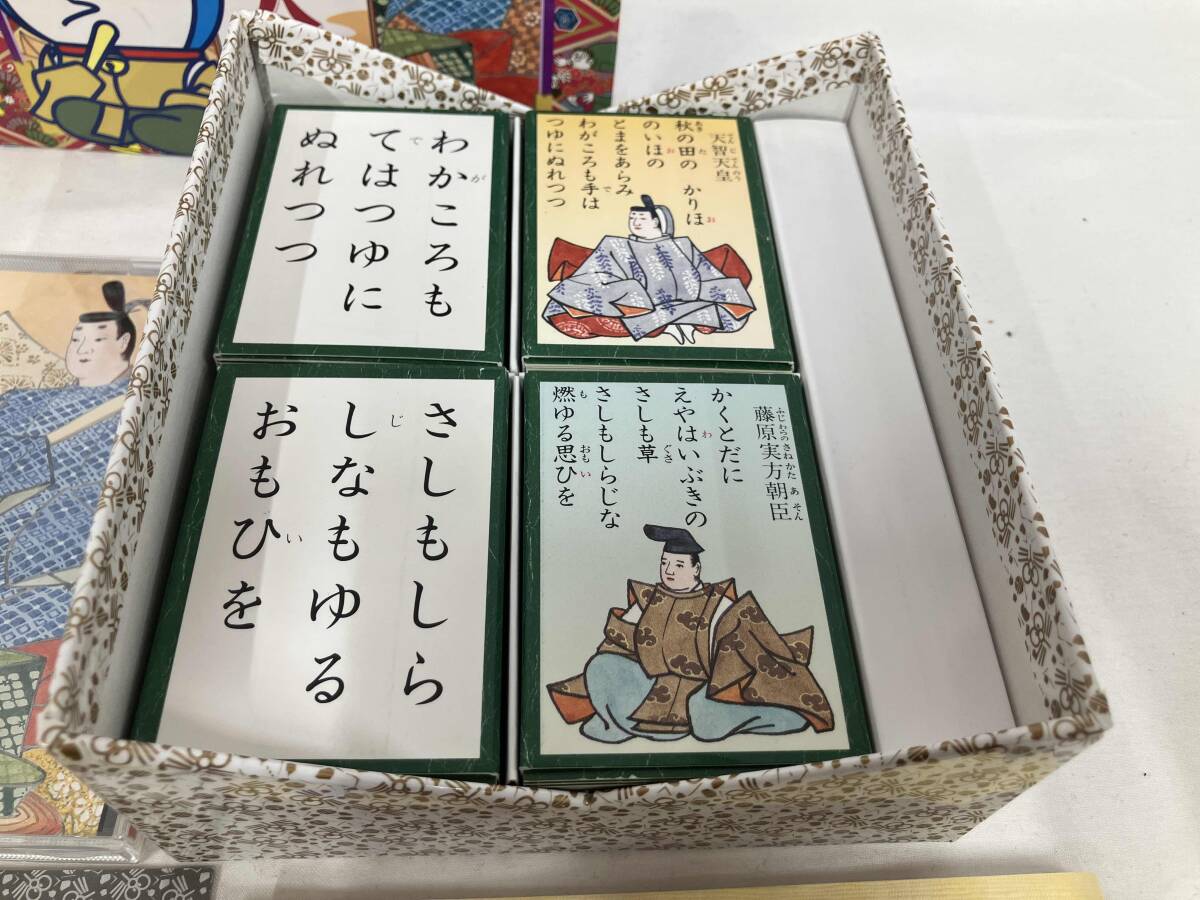 わかころも
てはつゆに
ぬれつつ
天智天皇
秋の田の かりほ
のいほの
とまをあらみ
わがころも手は
つゆにぬれつつ
さしもしら
しなもゆる
おもひを
藤原実方朝臣
かくとだに
えやはいぶきの
さしも草
さしもしらじな
燃ゆる思ひを